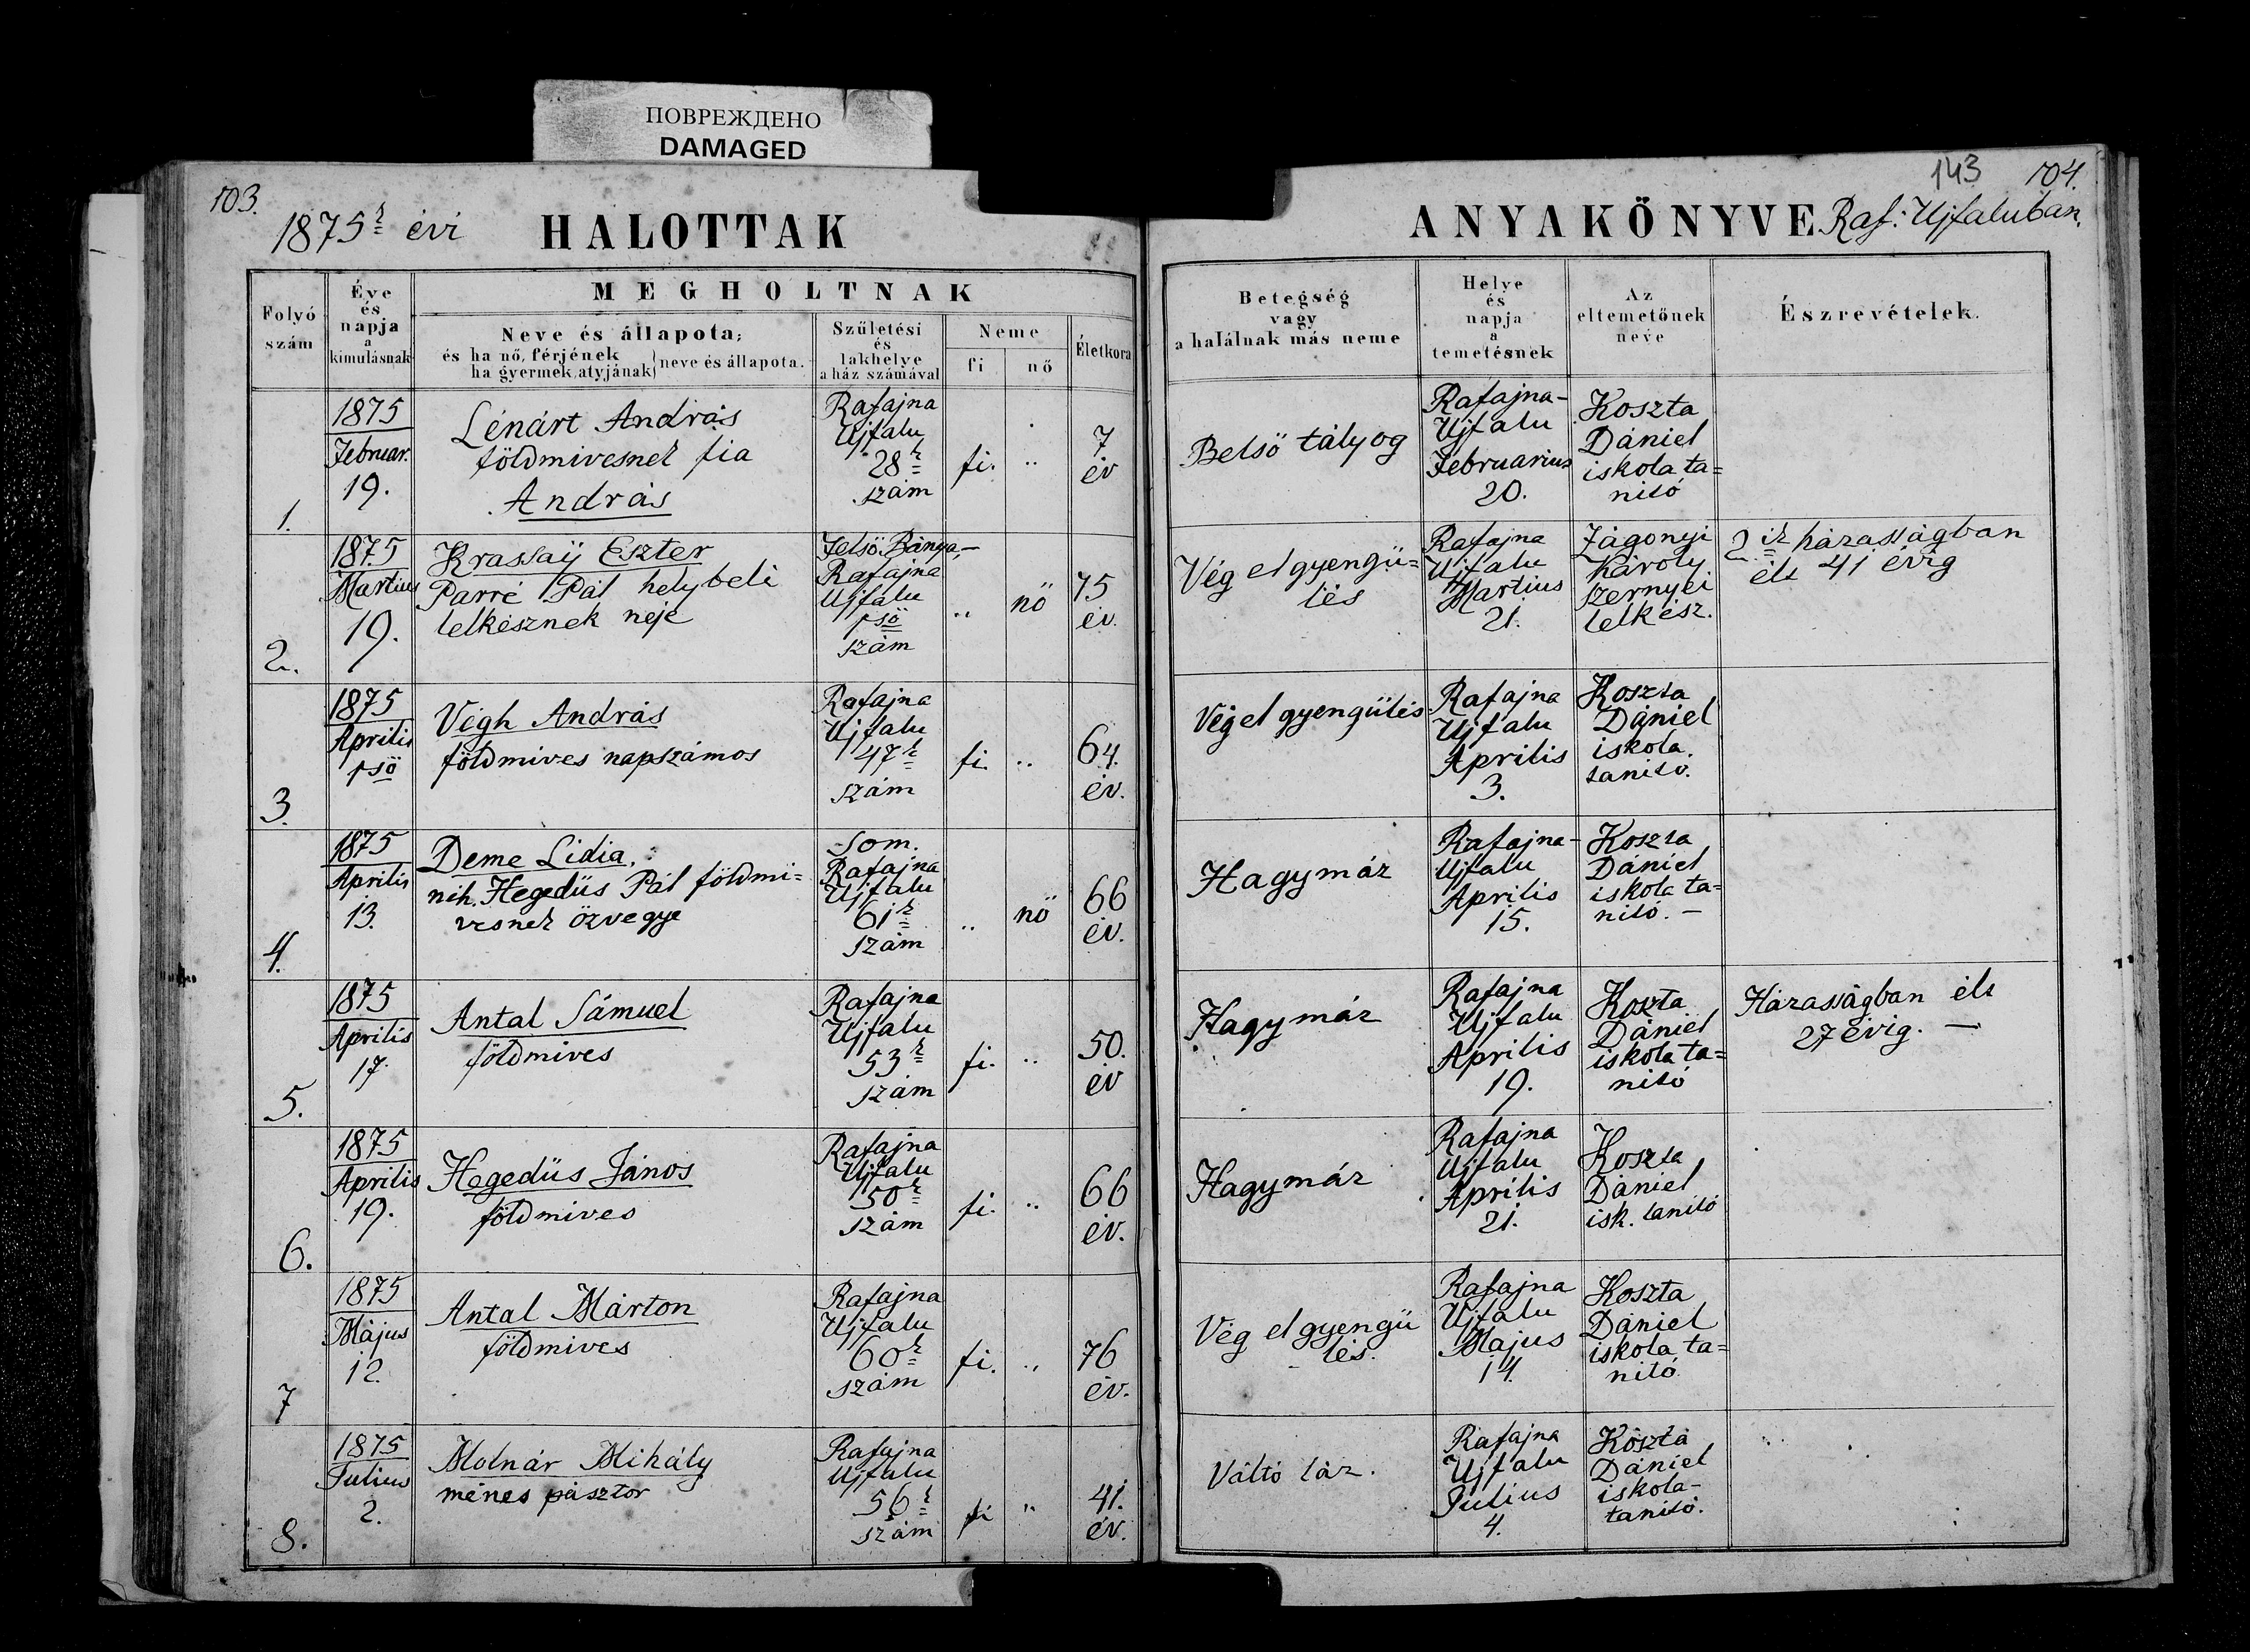 ПОВРЕЖДЕНО
DAMAGED
103.
1875 évi HALOTTAK
143 104.
ANYAKÖNYVE Raf: Ujfaluban.
Folyó szám
Éve és napja a kimulásnak
MEGHOLTNAK
Neve és állapota;
és ha nő, férjének
ha gyermek, atyjának } neve és állapota.
Születési és lakhelye a ház számával
Neme
fi
nő
Életkora
Betegség
vagy
a halálnak más neme
Helye és napja a temetésnek
Az eltemetőnek neve
Észrevételek.
1.
1875
Februar.
19.
Lénárt András
földmivesnek fia
András
Rafajna
Ujfalu
28
szám
fi.
"
7
év
Belső tályog
Rafajna-
Ujfalu
Februarius
20.
Koszta
Dániel
iskola ta=
nitó
2.
1875
Martius
19.
Krassaÿ Eszter
Parré Pál helybeli
lelkésznek neje
Felső Bánya,—
Rafajna
Ujfalu
1ső
szám
"
nö
75
év.
Vég elgyengü=
lés
Rafajna
Ujfalu
Martius
21.
Zágonyi
Károly
szernyei
lelkész.
2ik házasságban
élt 41 évig
3.
1875
Aprilis
1ső
Végh András
földmives napszámos
Rafajna
Ujfalu
47
szám
fi.
"
64.
év.
Vég elgyengülés
Rafajna
Ujfalu
Aprilis
3.
Koszta
Dániel
iskola
tanitó.
4.
1875
Aprilis
13.
Deme Lidia.
néh. Hegedüs Pál földmi=
vesnek özvegye
Som.
Rafajna
Ujfalu
61
szám
"
nö
66
év.
Hagymáz
Rafajna-
Ujfalu
Aprilis
15.
Koszta
Dániel
iskola ta=
nitó. —
5.
1875
Aprilis
17.
Antal Sámuel
földmives
Rafajna
Ujfalu
53
szám
fi.
"
50.
év
Hagymáz
Rafajna
Ujfalu
Aprilis
19.
Koszta
Dániel
iskola ta=
nitó
Házasságban élt
27 évig. —
6.
1875
Aprilis
19.
Hegedüs János
földmives
Rafajna
Ujfalu
50
szám
fi.
"
66
év.
Hagymáz
Rafajna
Ujfalu
Aprilis
21.
Koszta
Dániel
isk. tanitó
7
1875
Május
12.
Antal Márton
földmives
Rafajna
Ujfalu
60
szám
fi.
"
76
év.
Vég elgyengü
lés.
Rafajna
Ujfalu
Majus
14.
Koszta
Dániel
iskola ta=
nitó
8.
1875
Julius
2.
Molnár Mihály
ménes pásztor
Rafajna
Ujfalu
56
szám
fi
"
41.
év.
Váltó láz.
Rafajna
Ujfalu
Julius
4.
Koszta
Dániel
iskola-
tanitó.